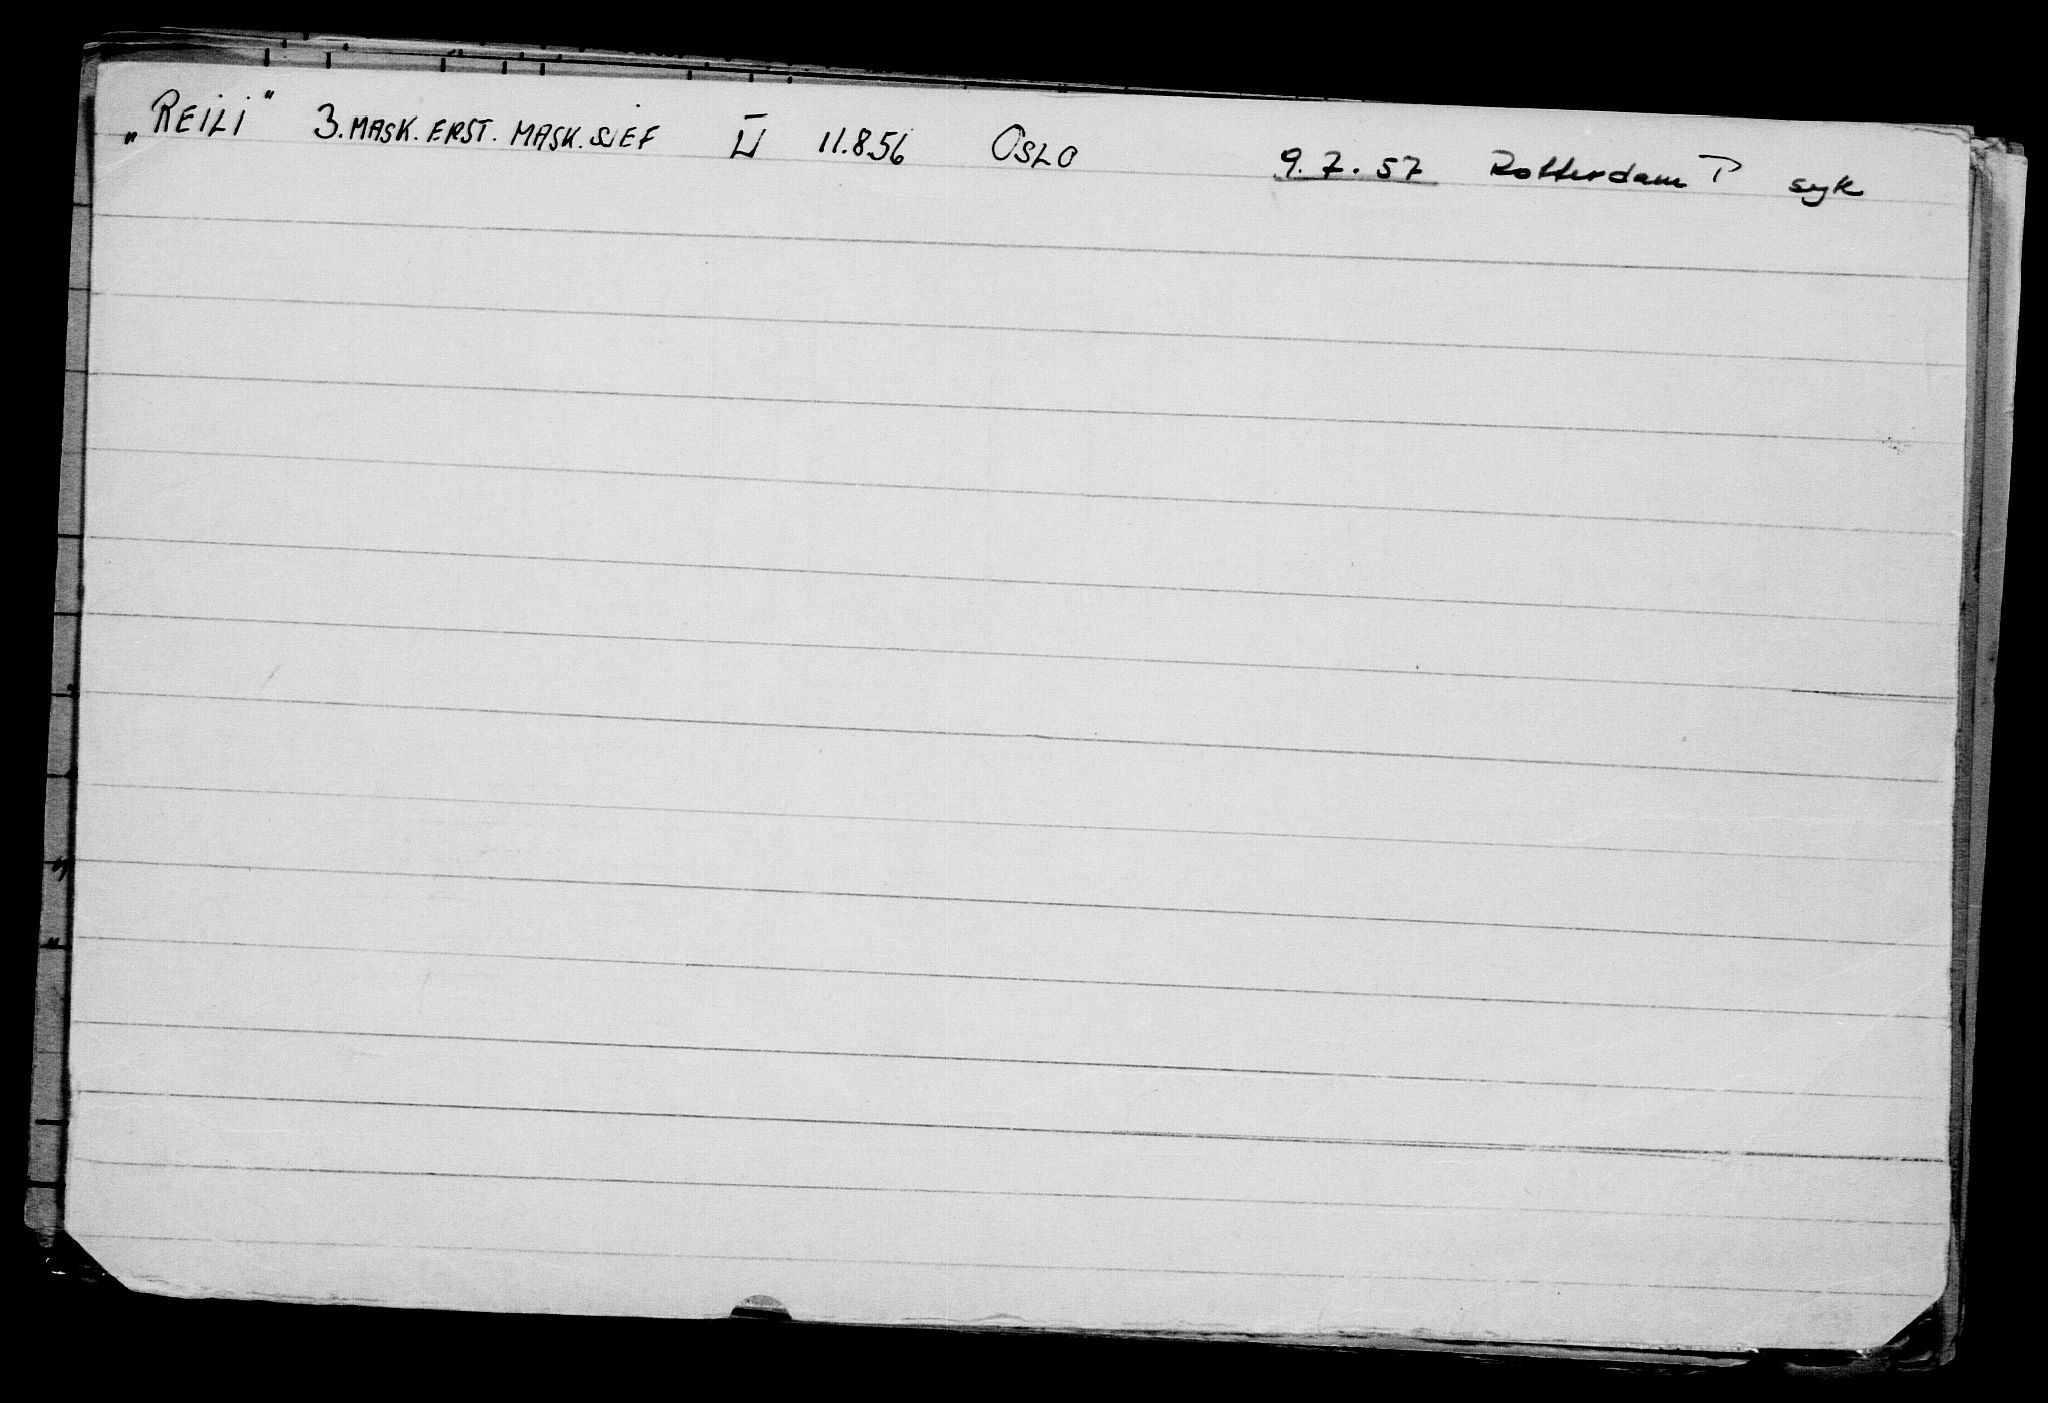 „REILI" 3. MASK. ERST. MASK. SJEF U 11.8.56 OSLO 9.7.57 Rotterdam P syk